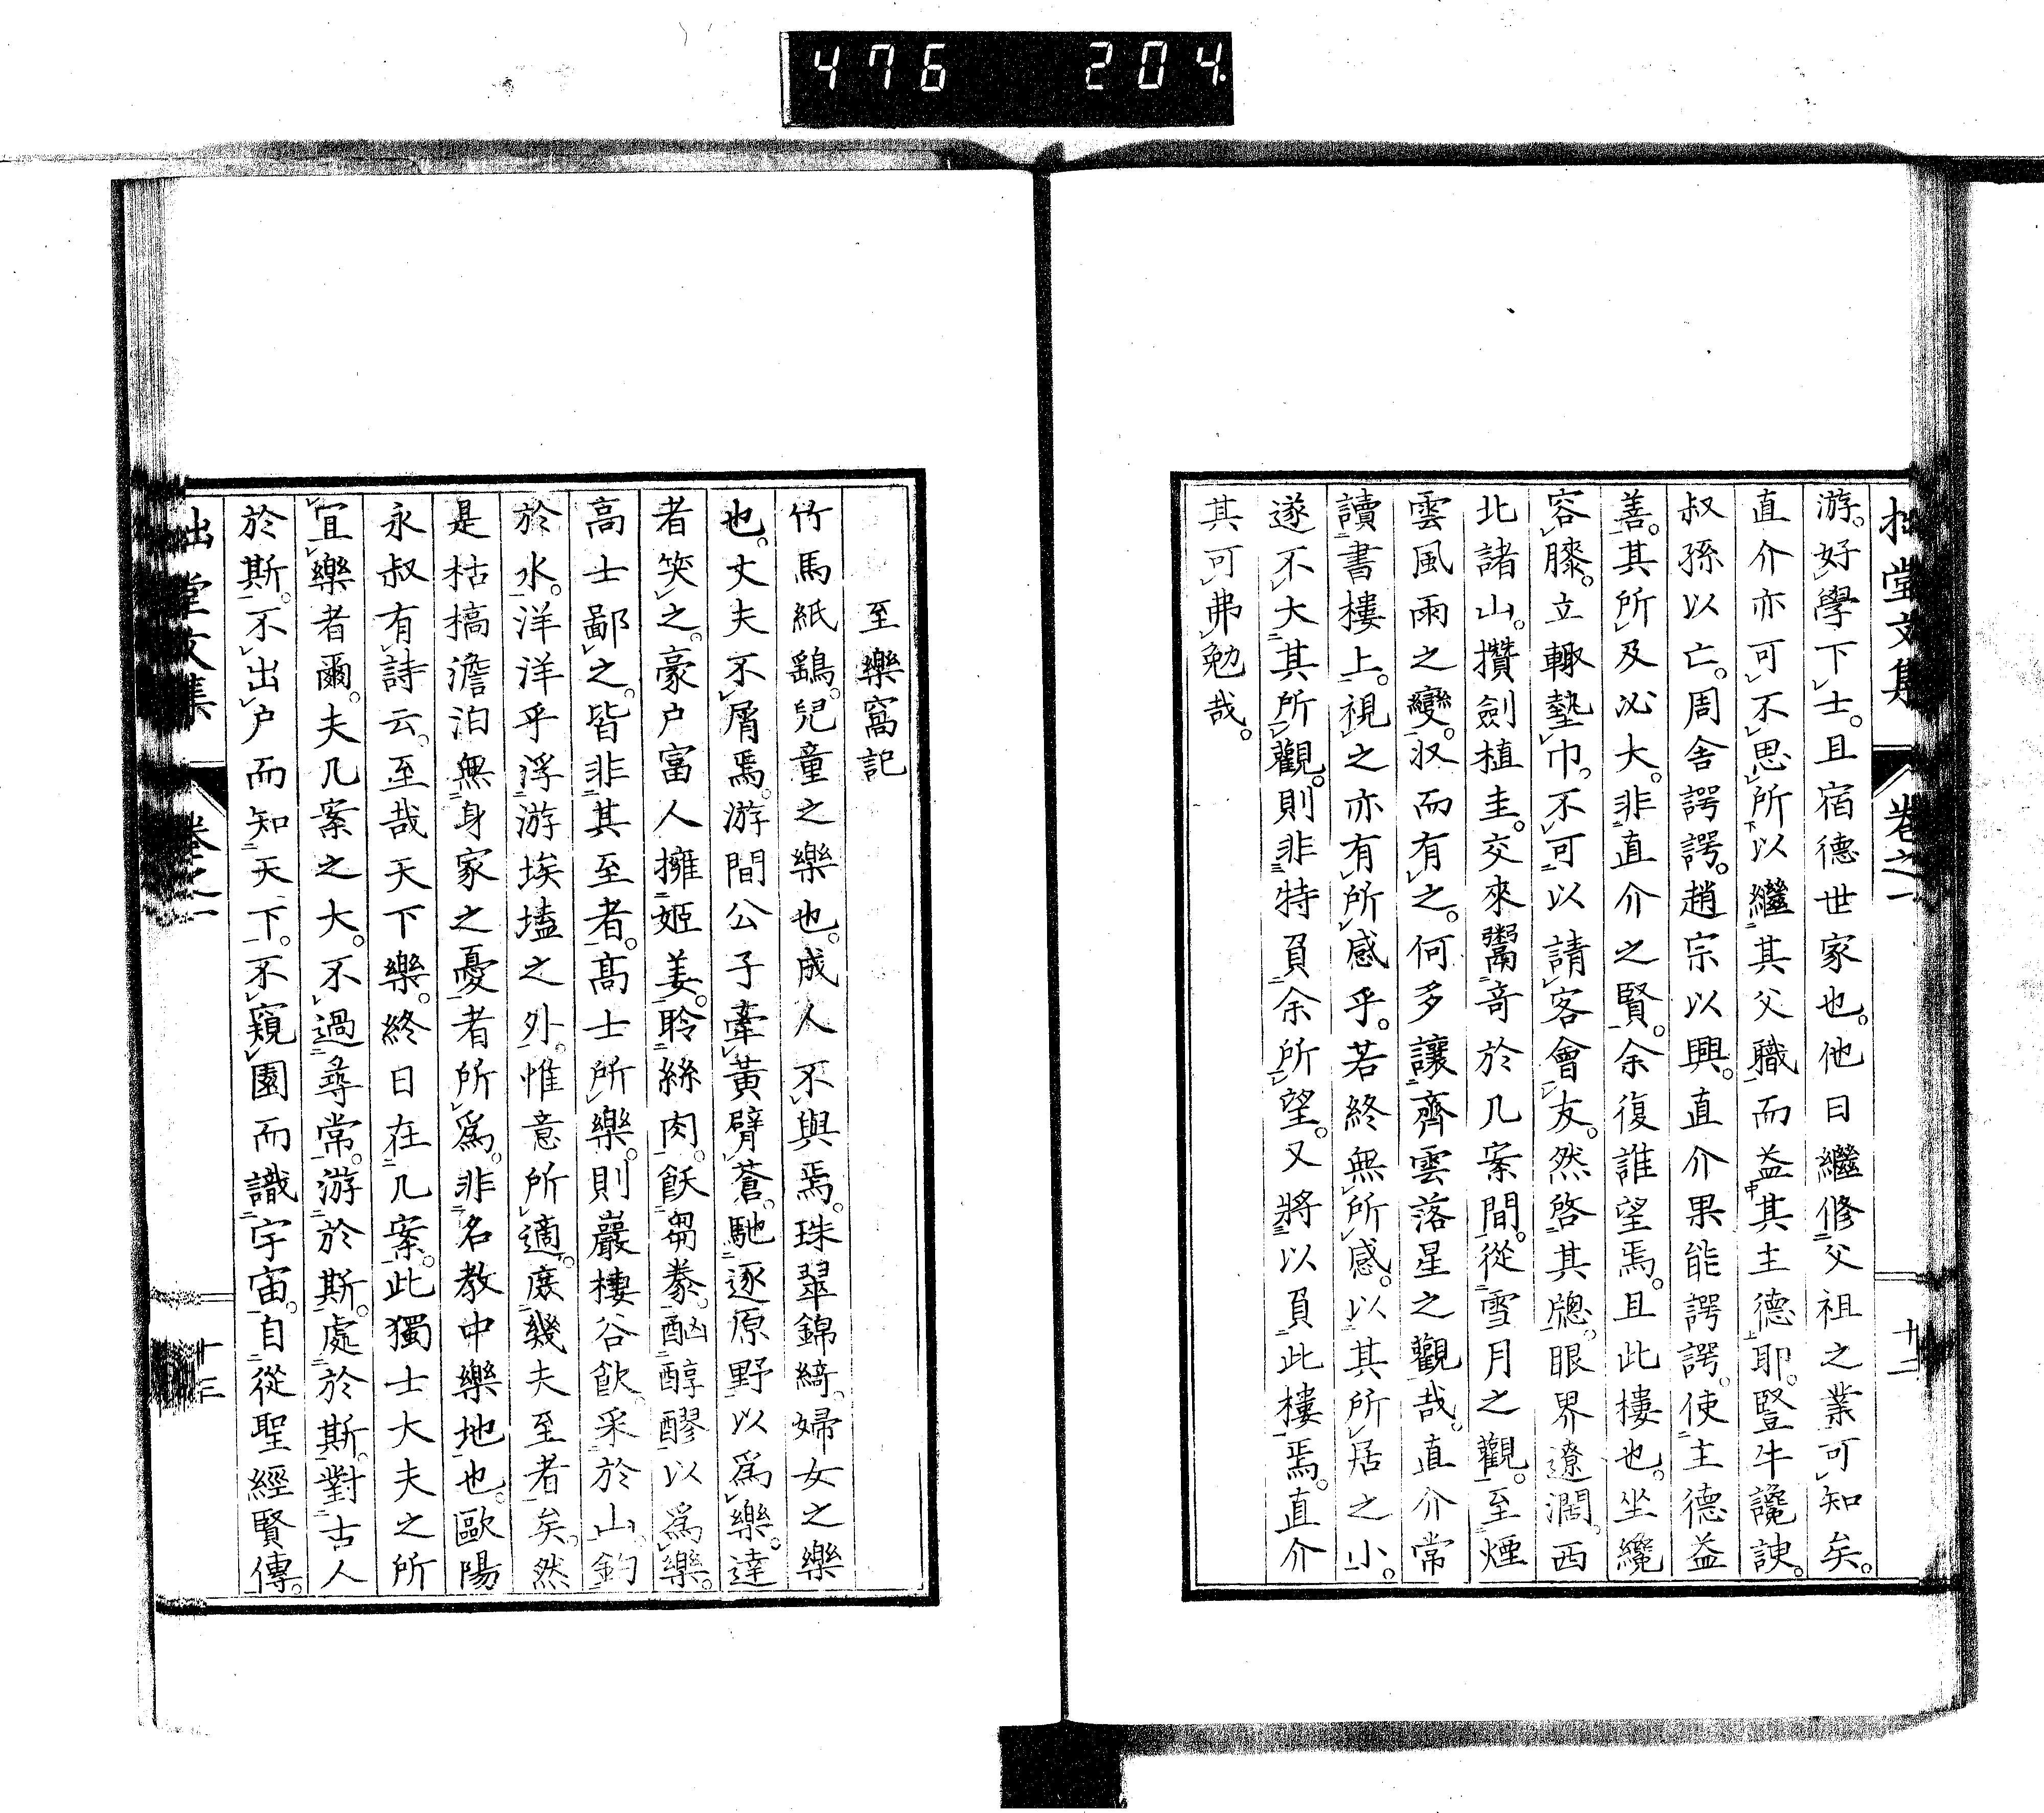 476 204
拙堂文集 卷之一 十二
游。好學下士。且宿德世家也。他日繼修父祖之業可知矣。
直介亦可不思所以繼其父職而益其主德耶。豎牛讒諛。
叔孫以亡。周舍諤諤。趙宗以興。直介果能諤諤。使主德益
善。其所及必大。非直介之賢。余復誰望焉。且此樓也。坐纔
容膝。立輙墊巾。不可以請客會友。然啓其牕。眼界遼濶。西
北諸山。攢劍植圭。交來鬻奇於几案間。從雪月之觀。至煙
雲風雨之變。収而有之。何多讓齊雲落星之觀哉。直介常
讀書樓上。視之亦有所感乎。若終無所感。以其所居之小。
遂不大其所觀。則非特負余所望。又將以負此樓焉。直介
其可弗勉哉。
至樂窩記
竹馬紙鷂。兒童之樂也。成人不與焉。珠翠錦綺。婦女之樂
也。丈夫不屑焉。游間公子牽黃臂蒼。馳逐原野以爲樂。達
者笑之。豪户富人擁姬姜。聆絲肉。飫芻豢。酗醇醪以爲樂。
高士鄙之。皆非其至者。高士所樂。則巖棲谷飮。采於山。釣
於水。洋洋乎浮游埃壒之外。惟意所適。庶幾夫至者矣。然
是枯槁澹泊無身家之憂者所爲。非名教中樂地也。歐陽
永叔有詩云。至哉天下樂。終日在几案。此獨士大夫之所
宜樂者爾。夫几案之大。不過尋常。游於斯。處於斯。對古人
於斯。不出户而知天下。不窺園而識宇宙。自從聖經賢傳。
拙堂文集 卷之一 十三